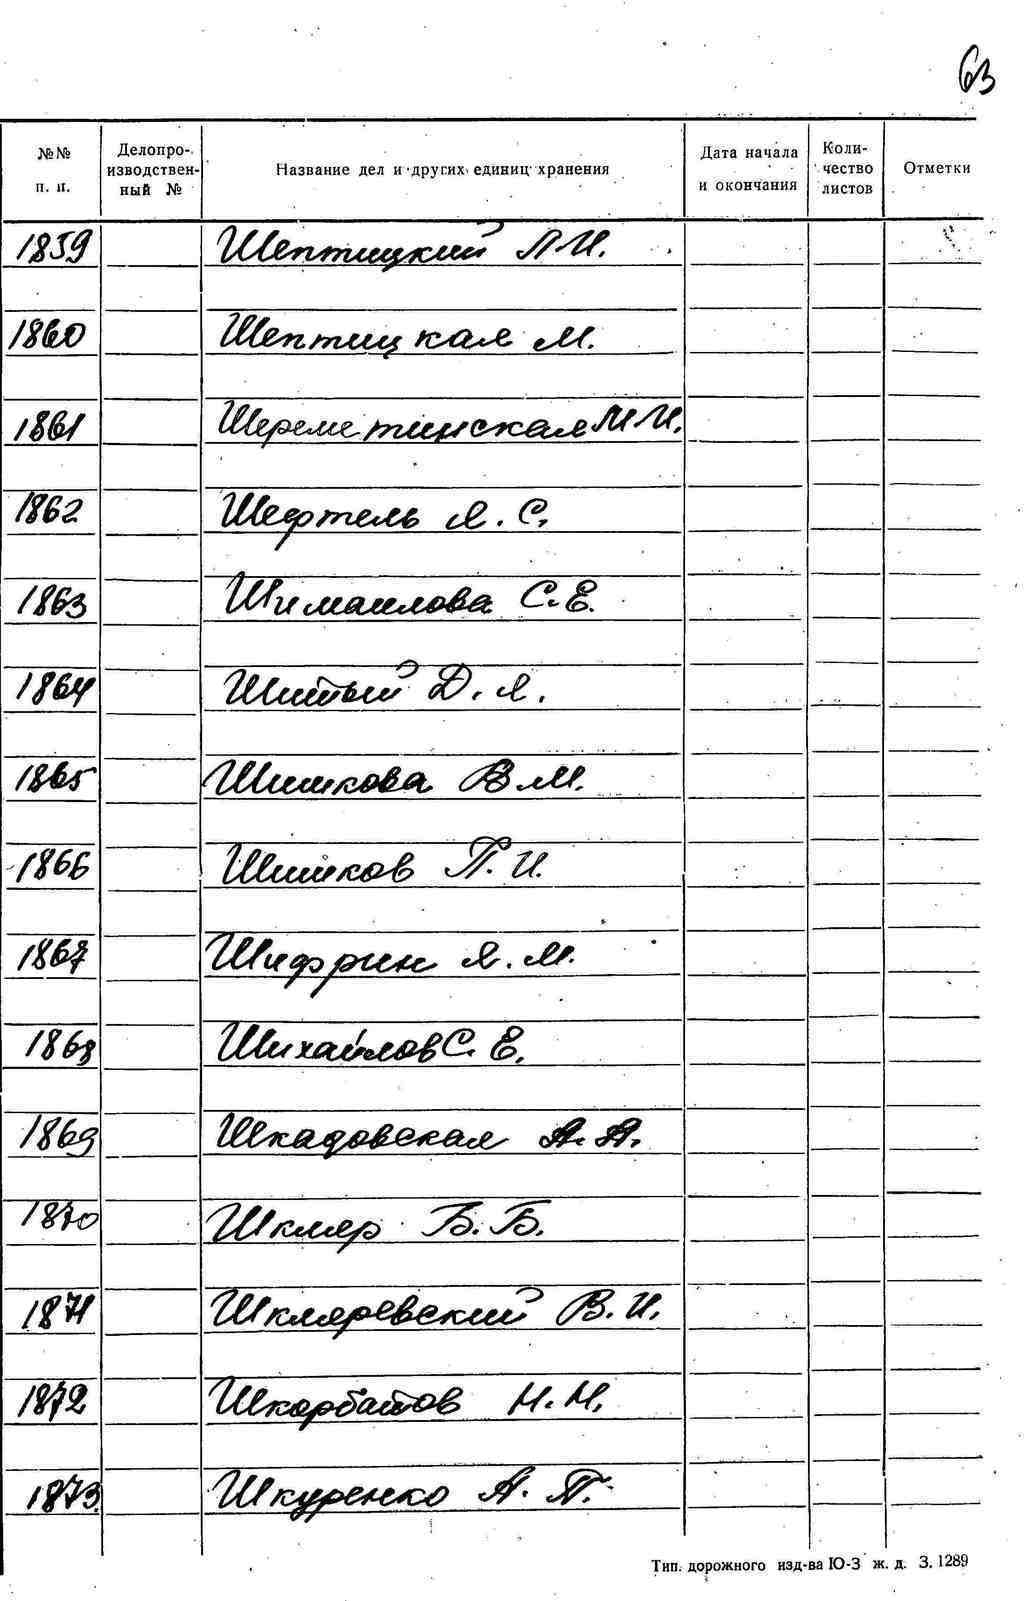 63
№№ п. п. Делопроизводственный № Название дел и других единиц хранения Дата начала и окончания Количество листов Отметки
1859 Шептицкий Л.И.
1860 Шептицкая М.
1861 Шереметинская М.И.
1862 Шефтель Я. С.
1863 Шимаилова С.Е.
1864 Шитый Д. Я.
1865 Шишкова В.М.
1866 Шишков П. И.
1867 Шифрин Я. М.
1868 Шихайлов С. Е.
1869 Шкадовская А. А.
1870 Шкляр Б. Б.
1871 Шкляревский В. И.
1872 Шкорбатов Н. Н.
1873 Шкуренко А. П.
Тип. дорожного изд-ва Ю-З ж. д. З. 1289